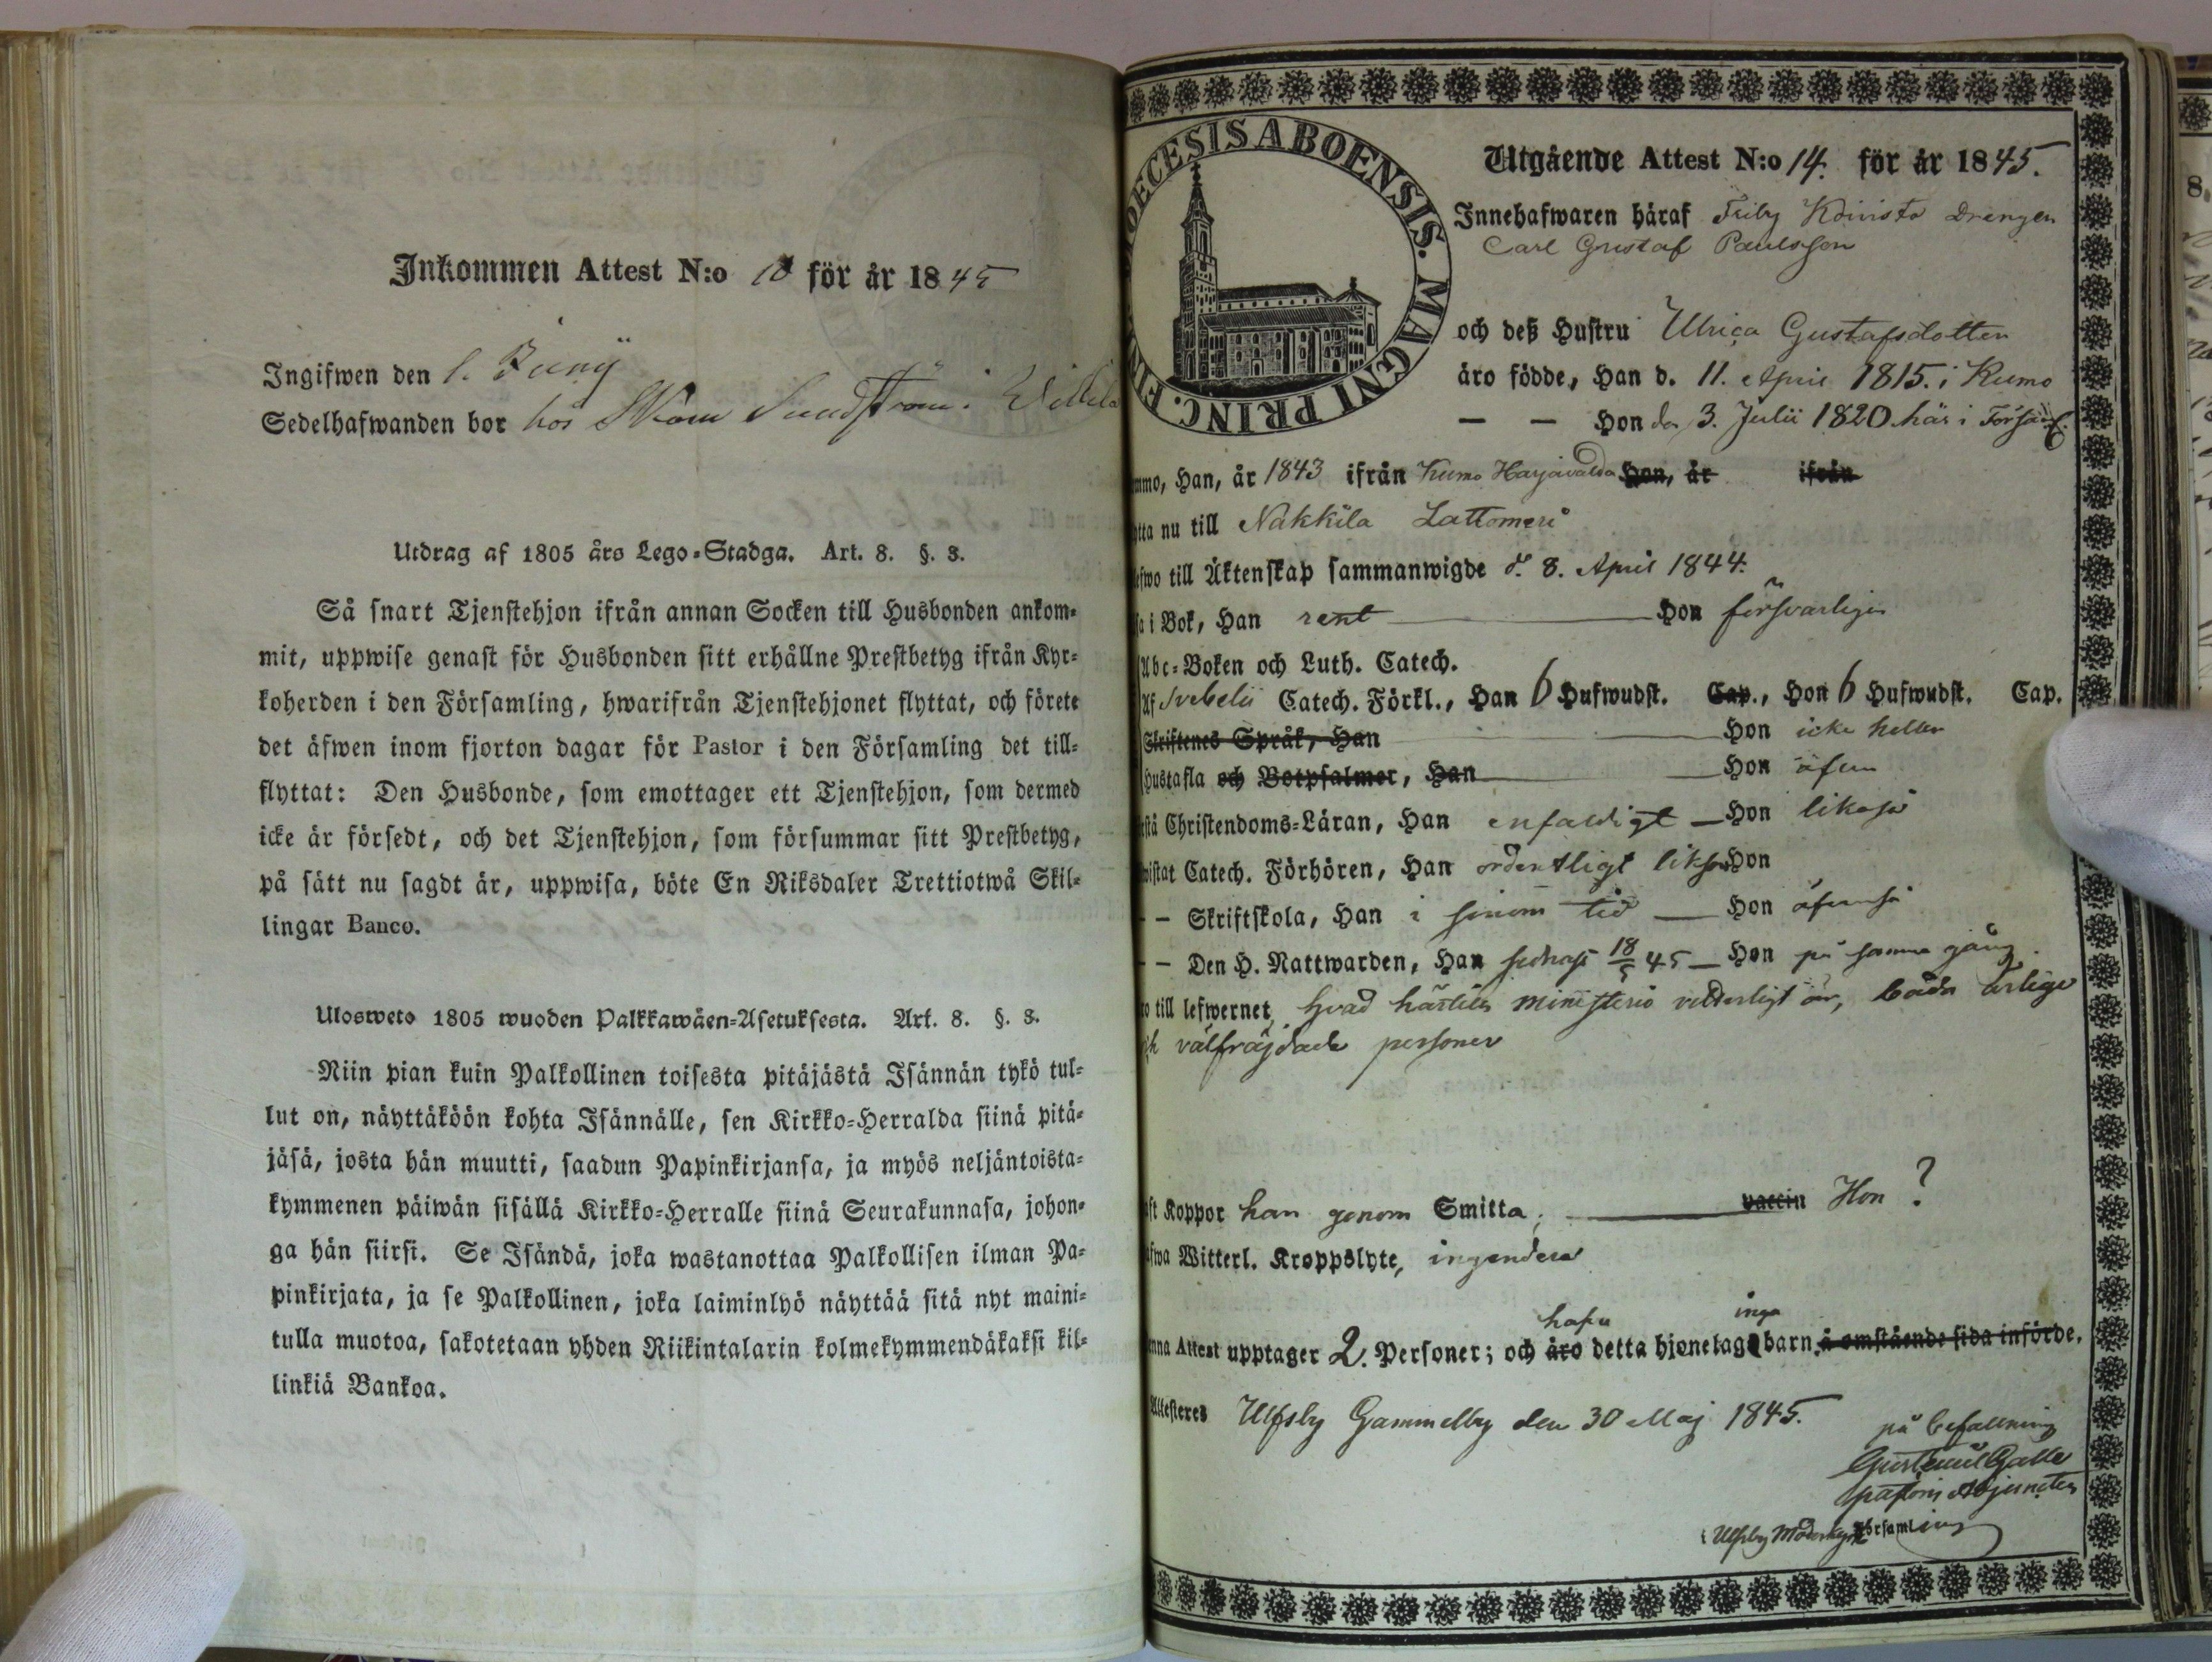 Inkommen Attest N:o 10 för år 1845
Ingifwen den 1. Junij
Sedelhafwanden bor hos Skom Sundström i
Utdrag af 1805 års Lego-Stadga. Art. 8. §. 3.
Så snart Tjenstehjon ifrån annan Socken till Husbonden ankom-
mit, uppwise genast för Husbonden sitt erhållne Prestbetyg ifrån Kyr-
koherden i den Församling, hwarifrån Tjenstehjonet flyttat, och förete
det äfwen inom fjorton dagar för Pastor i den Församling det till-
flyttat: Den Husbonde, som emottager ett Tjenstehjon, som dermed
icke är försedt, och det Tjenstehjon, som försummar sitt Prestbetyg,
på sätt nu sagdt är, uppwisa, böte En Riksdaler Trettiotwå Skil-
lingar Banco.
Ulosweto 1805 wuoden Palkkawäen-Asetuksesta. Art. 8. §. 3.
Niin pian kuin Palkollinen toisesta pitäjästä Isännän tykö tul-
lut on, näyttäköön kohta Isännälle, sen Kirkko-Herralda siinä pitä-
jäsä, josta hän muutti, saadun Papinkirjansa, ja myös neljäntoista-
kymmenen päiwän sisällä Kirkko-Herralle siinä Seurakunnasa, johon-
ga hän siirsi. Se Isändä, joka wastanottaa Palkollisen ilman Pa-
pinkirjata, ja se Palkollinen, joka laiminlyö näyttää sitä nyt maini-
tulla muotoa, sakotetaan yhden Riikintalarin kolmekymmendäkaksi kil-
linkiä Bankoa.
DIOECESIS ABOENSIS. MAGNI PRINC. FIN
Utgående Attest N:o 14. för år 1845.
Innehafwaren häraf Friby Koivisto Drengen
Carl Gustaf Paulsson
och deß Hustru Ulrica Gustafsdotter
äro födde, Han d. 11. April 1815. i Kumo
— — Hon den 3. Julii 1820 här i Förs.
mmo, Han, år 1843 ifrån Kumo Harjavalda Hon, år ifrån
ytta nu till Nakkila Lattomeri
efwo till Äktenskap sammanwigde d. 8. April 1844.
sa i Bok, Han rent — Hon försvarligen
Abc-Boken och Luth. Catech.
Af Svebelii Catech. Förkl., Han 6 Hufwudst. Cap., Hon 6 Hufwudst. Cap.
Skriftenes Språk, Han — Hon icke heller
Hustafla och Botpsalmer, Han — Hon äfven
rstå Christendoms-Läran, Han enfaldigt — Hon likaså
wistat Catech. Förhören, Han ordentligt liksom Hon
— — Skriftskola, Han i sinom tid — Hon äfvenså
— — Den H. Nattwarden, Han sednast 18/5 45 — Hon på samma gång.
ro till lefwernet, hvad härtills ministerio vetterligt är, båda ärlige
och välfräjdade personer
aft Koppor han genom Smitta; — vaccin Hon ?
afwa Witterl. Kroppslyte, ingendera
hafva inga
enna Attest upptager 2. Personer; och äro detta hjonelags barn å omstående sida införde.
Attesteres Ulfsby Gammelby den 30 Maj 1845.
på befallning
Gust. Emil Galle
pastoris Adjunctus
i Ulfsby Moderkyrko Församling